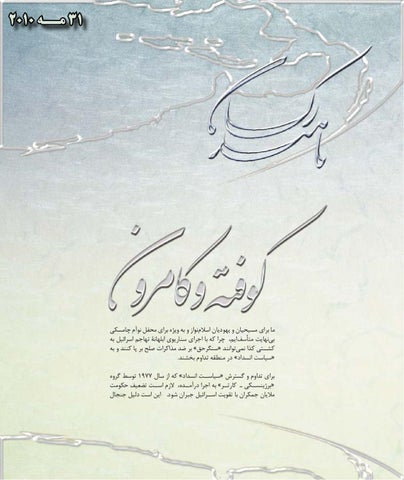 ۳۱ مـــه ۲۰۱۰
کوفته و کامرون
ما برای مسیحیان و یهودیان اسلام‌نواز و به ویژه برای محفل نوآم چامسکی
بی‌نهایت متأسفایم، چرا که با اجرای سناریوی ابلهانهٔ تهاجم اسرائیل به
کشتی کذا نمی‌توانند «سنگر حق» بر ضد مذاکرات صلح بر پا کنند و به
«سیاست انسداد» در منطقه تداوم بخشند.
برای تداوم و گسترش «سیاست انسداد» که از سال ۱۹۷۷ توسط گروه
«برژینسکی ـ کارتر» به اجرا درآمده، لازم است تضعیف حکومت
ملایان جمکران با تقویت اسرائیل جبران شود. این است دلیل جنجال